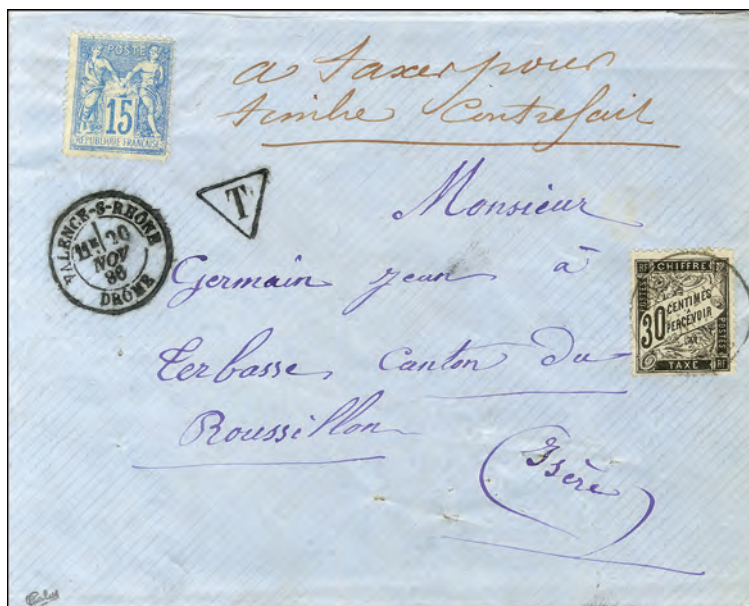 POSTE
15
RÉPUBLIQUE FRANÇAISE
a taxer pour
timbre Contrefait
T
VALENCE-S-RHÔNE
20
NOV
86
DRÔME
Monsieur
Germain jean à
Terbasse, Canton du
Roussillon
(Isère)
RF CHIFFRE
POSTES
30 CENTIMES
À
PERCEVOIR
POSTES
TAXE RF